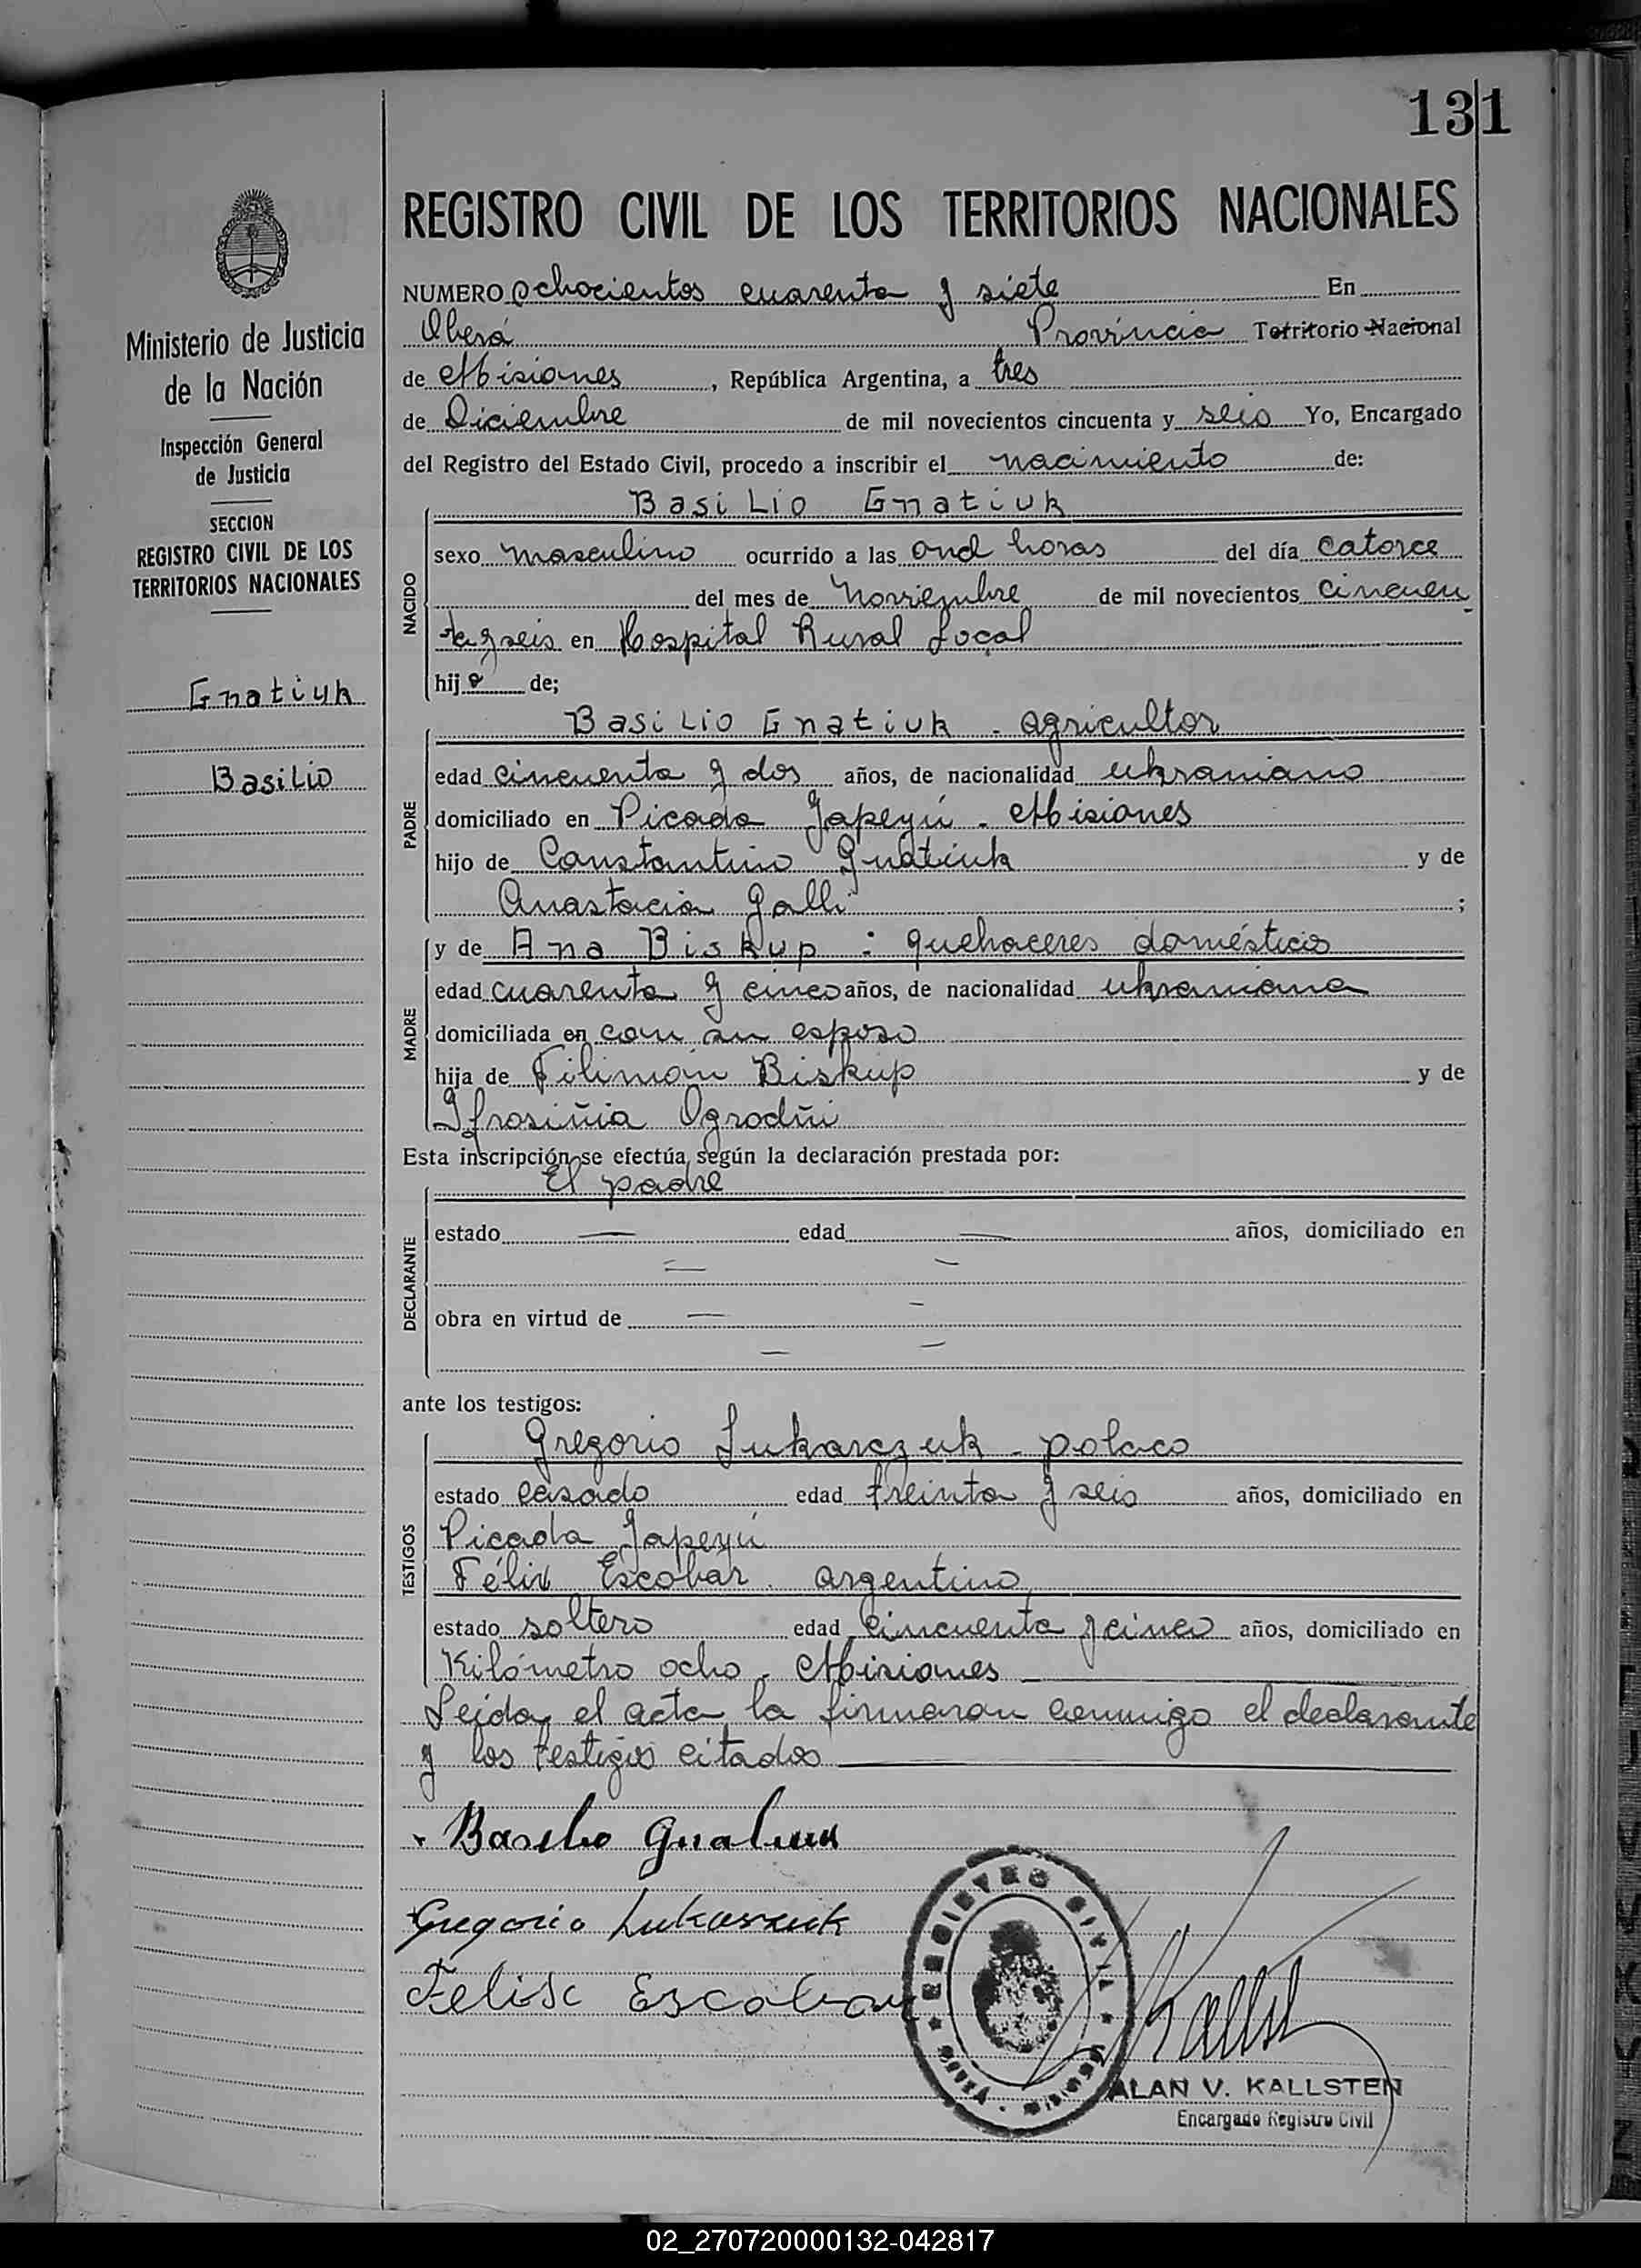 131
REGISTRO CIVIL DE LOS TERRITORIOS NACIONALES
Ministerio de Justicia
de la Nación
Inspección General
de Justicia
SECCION
REGISTRO CIVIL DE LOS
TERRITORIOS NACIONALES
Gnatiuk
Basilio
NUMERO ochocientos cuarenta y siete En
Oberá Provincia Territorio Nacional
de Misiones, República Argentina, a tres
de Diciembre de mil novecientos cincuenta y seis Yo, Encargado
del Registro del Estado Civil, procedo a inscribir el nacimiento de:
NACIDO
Basilio Gnatiuk
sexo masculino ocurrido a las once horas del día catorce
del mes de Noviembre de mil novecientos cincuen
ta y seis en Hospital Rural Local
hijo de;
PADRE
Basilio Gnatiuk - agricultor
edad cincuenta y dos años, de nacionalidad ukraniano
domiciliado en Picada Yapeyú - Misiones
hijo de Constantino Gnatiuk y de
Anastacia Galli ;
MADRE
y de Ana Biskup : quehaceres domésticos
edad cuarenta y cinco años, de nacionalidad ukraniana
domiciliada en con su esposo
hija de Filimón Biskup y de
Ifrosiñia Ogrodñi
Esta inscripción se efectúa según la declaración prestada por:
DECLARANTE
El padre
estado — edad — años, domiciliado en
obra en virtud de —
ante los testigos:
TESTIGOS
Gregorio Lukarczuk - polaco
estado casado edad treinta y seis años, domiciliado en
Picada Yapeyú
Félix Escobar - argentino
estado soltero edad cincuenta y cinco años, domiciliado en
Kilómetro ocho - Misiones
Leída el acta la firmaron conmigo el declarante
y los testigos citados
Basilio Gnatiuk
Gregorio Lukaszuk
Felisc Escobar
REGISTRO CIVIL
Kallst
ALAN V. KALLSTEN
Encargado Registro Civil
02_270720000132-042817